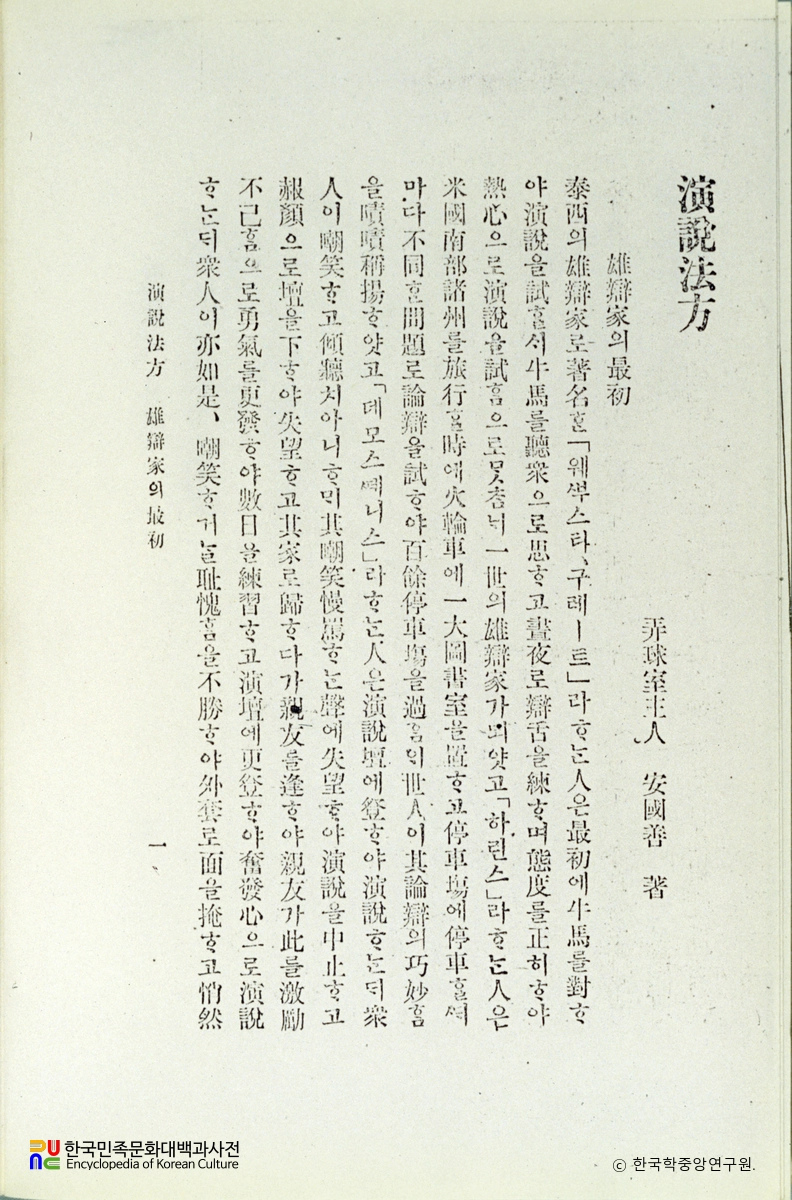 演說法方
弄球室主人 安國善 著
雄辯家의最初
泰西의雄辯家로著名ᄒᆞᆫ「웨ᄲᅮ스타、구레ー트」라ᄒᆞᄂᆞᆫ人은最初에牛馬를對ᄒᆞ
야演說을試ᄒᆞᆯᄉᆡ牛馬를聽衆으로思ᄒᆞ고晝夜로辯舌을練ᄒᆞ며態度를正히ᄒᆞ야
熱心으로演說을試ᄒᆞᆷ으로ᄆᆞᆺᄎᆞᆷᄂᆡ一世의雄辯家가되얏고「하린스」라ᄒᆞᄂᆞᆫ人은
米國南部諸州를旅行ᄒᆞᆯ時에火輪車에一大圖書室을置ᄒᆞ고停車塲에停車ᄒᆞᆯᄯᅢ
마다不同ᄒᆞᆫ問題로論辯을試ᄒᆞ야百餘停車塲을過ᄒᆞᆷᄋᆡ世人이其論辯의巧妙ᄒᆞᆷ
을嘖嘖稱揚ᄒᆞ얏고「데모스ᄯᅦ니스」라ᄒᆞᄂᆞᆫ人은演說壇에登ᄒᆞ야演說ᄒᆞᄂᆞᆫᄃᆡ衆
人이嘲笑ᄒᆞ고傾聽치아니ᄒᆞᄆᆡ其嘲笑慢罵ᄒᆞᄂᆞᆫ聲에失望ᄒᆞ야演說을中止ᄒᆞ고
赧顔으로壇을下ᄒᆞ야失望ᄒᆞ고其家로歸ᄒᆞ다가親友를逢ᄒᆞ야親友가此를激勵
不已ᄒᆞᆷ으로勇氣를更發ᄒᆞ야數日을練習ᄒᆞ고演壇에更登ᄒᆞ야奮發心으로演說
ᄒᆞᄂᆞᆫᄃᆡ衆人이亦如是、嘲笑ᄒᆞ거ᄂᆞᆯ耻愧ᄒᆞᆷ을不勝ᄒᆞ야外套로面을掩ᄒᆞ고悄然
演說法方 雄辯家의最初 一
한국민족문화대백과사전
Encyclopedia of Korean Culture
ⓒ 한국학중앙연구원.